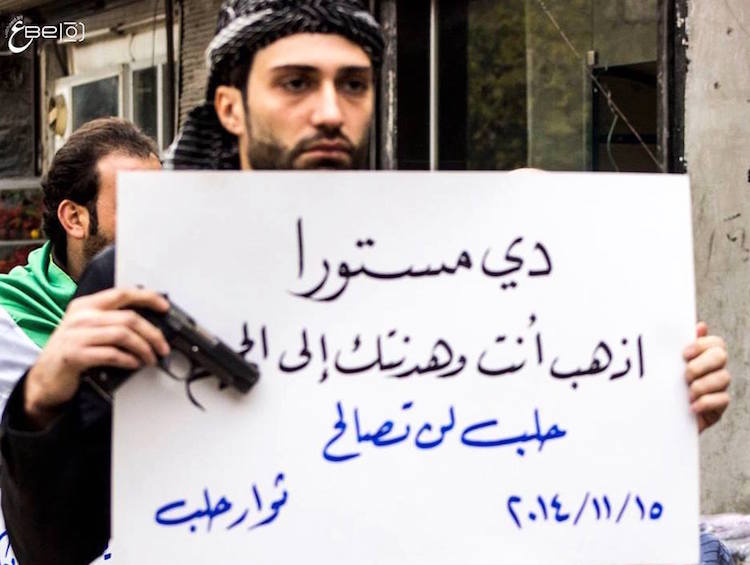 دي مستورا
اذهب أنت وهدنتك إلى
حلب لن تصالح
٢٠١٤/١١/١٥
ثوار حلب